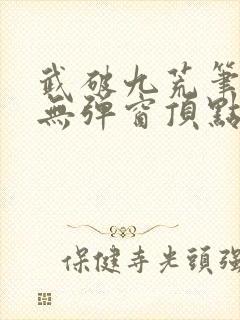 武破九荒筆
無彈窗頂點
保健寺光頭強